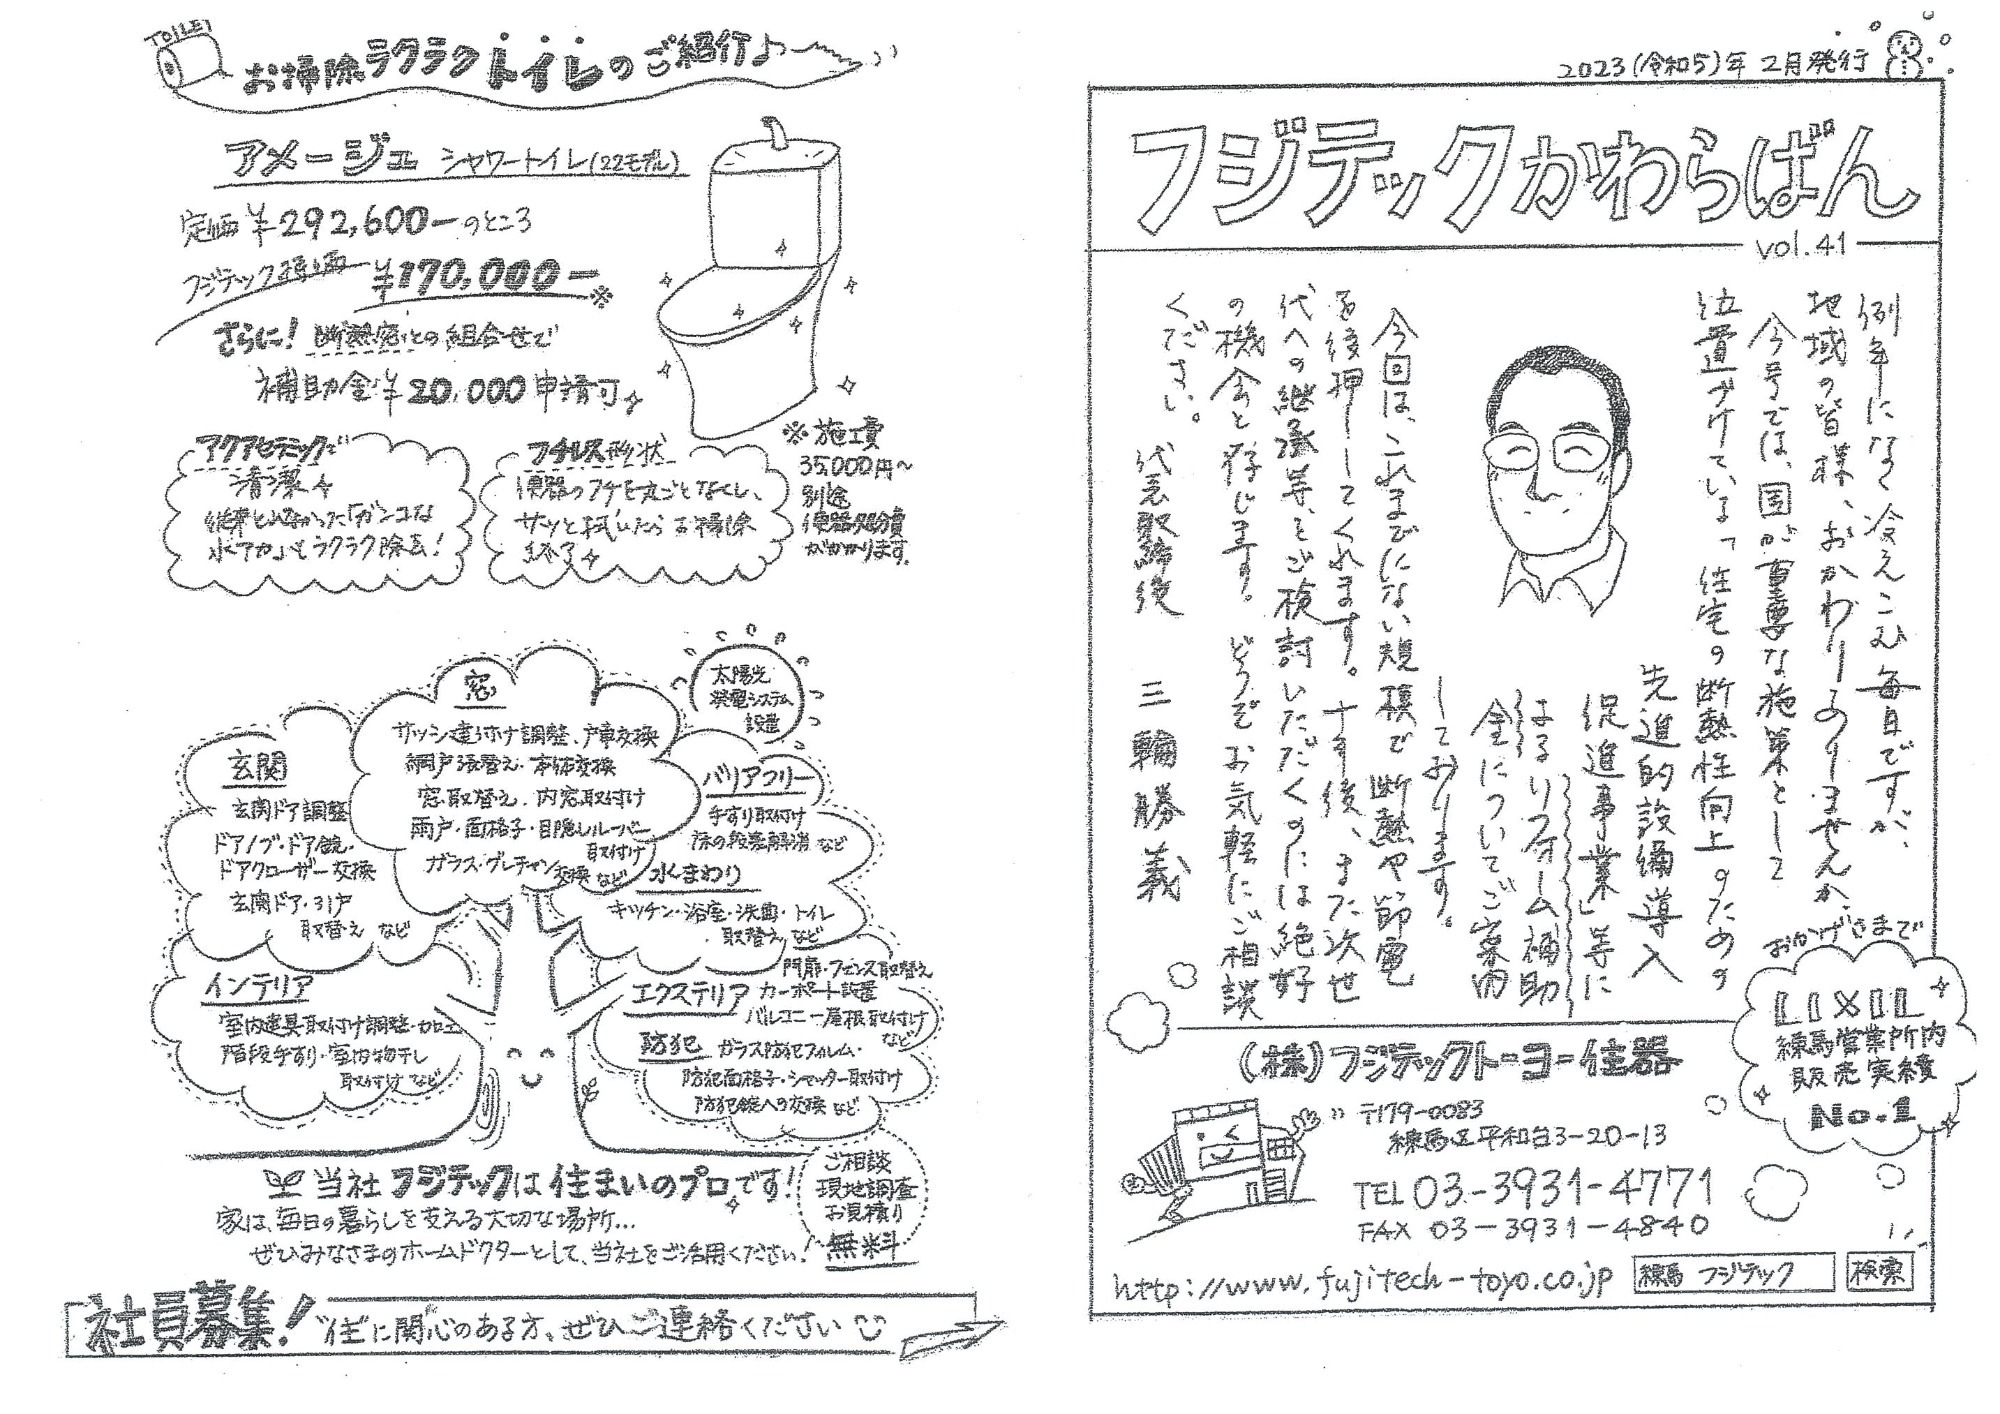 2023(令和5)年 2月発行
フジテックかわらばん
vol.41
例年になく冷えこむ毎日ですが、
地域の皆様、おかわりありませんか。
今号では、国が重要な施策として
位置づけている「住宅の断熱性向上のための
先進的設備導入
促進事業」等に
よるリフォーム補助
金についてご案内
しております。
今回は、これまでにない規模で断熱や節電
を後押ししてくれます。十年後、また次世
代への継承等、とご検討いただくのには絶好
の機会と存じます。どうぞお気軽にご相談
ください。
代表取締役 三輪勝義
おかげさまで
LIXIL
練馬営業所内
販売実績
No.1
(株)フジテックトーヨー住器
〒179-0083
練馬区平和台3-20-13
TEL 03-3931-4771
FAX 03-3931-4840
http://www.fujitech-toyo.co.jp
練馬 フジテック 検索
TOILET
お掃除ラクラクトイレのご紹介♪
アメージュ シャワートイレ(22モデル)
定価¥292,600ーのところ
フジテック特価 ¥170,000ー※
さらに!断熱窓との組合せで
補助金¥20,000申請可
アクアセラミックで
清潔
従来とれなかった「ガンコな
水アカ」もラクラク除去!
フチレス形状
便器のフチを丸ごとなくし、
サッと拭いたらお掃除
終了
※施工費
35,000円〜
別途
便器処分費
がかかります。
太陽光
発電システム
設置
窓
サッシ建付け調整、戸車交換
網戸張替え・本体交換
窓取替え、内窓取付け
雨戸・面格子・目隠しルーバー
取付け
ガラス・グレチャン交換 など
玄関
玄関ドア調整
ドアノブ・ドア錠・
ドアクローザー交換
玄関ドア・引戸
取替え など
バリアフリー
手すり取付け
床の段差解消 など
水まわり
キッチン・浴室・洗面・トイレ
取替え など
インテリア
室内建具取付け調整・加工
階段手すり・室内物干し
取付け など
エクステリア
門扉・フェンス取替え
カーポート設置
バルコニー屋根取付け
など
防犯
ガラス防犯フィルム・
防犯面格子・シャッター取付け
防犯錠への交換 など
当社フジテックは住まいのプロです!
家は、毎日の暮らしを支える大切な場所…
ぜひみなさまのホームドクターとして、当社をご活用ください!
ご相談
現地調査
お見積り
無料
社員募集! "住"に関心のある方、ぜひご連絡ください